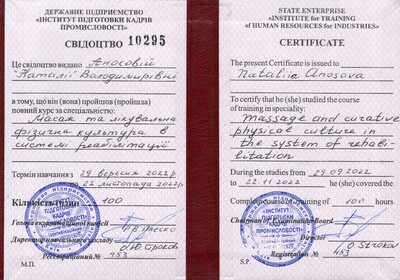 ДЕРЖАВНЕ ПІДПРИЄМСТВО
«ІНСТИТУТ ПІДГОТОВКИ КАДРІВ
ПРОМИСЛОВОСТІ»
СВІДОЦТВО 10295
Це свідоцтво видано Аносовій
Наталії Володимирівні
в тому, що він (вона) пройшов (пройшла)
повний курс за спеціальністю:
Масаж та лікувальна
фізична культура в
системі реабілітації
Термін навчання з 29 вересня 2022р.
по 22 листопада 2022р.
Кількість годин 100
Голова
Директор навчального закладу
Реєстраційний № 453
М.П.
STATE ENTERPRISE
«INSTITUTE for TRAINING
of HUMAN RESOURCES for INDUSTRIES»
CERTIFICATE
The present Certificate is issued to
Nataliia Anosova
To certify that he (she) studied the course
of training in speciality:
Massage and curative
physical culture in
the system of rehabi-
litation
During the studies from 29.09.2022
to 22.11.2022 he (she) covered the
Complete course of training of 100 hours
Chairman of Examination Board
Director O. Strokov
Registration № 453
S.P.